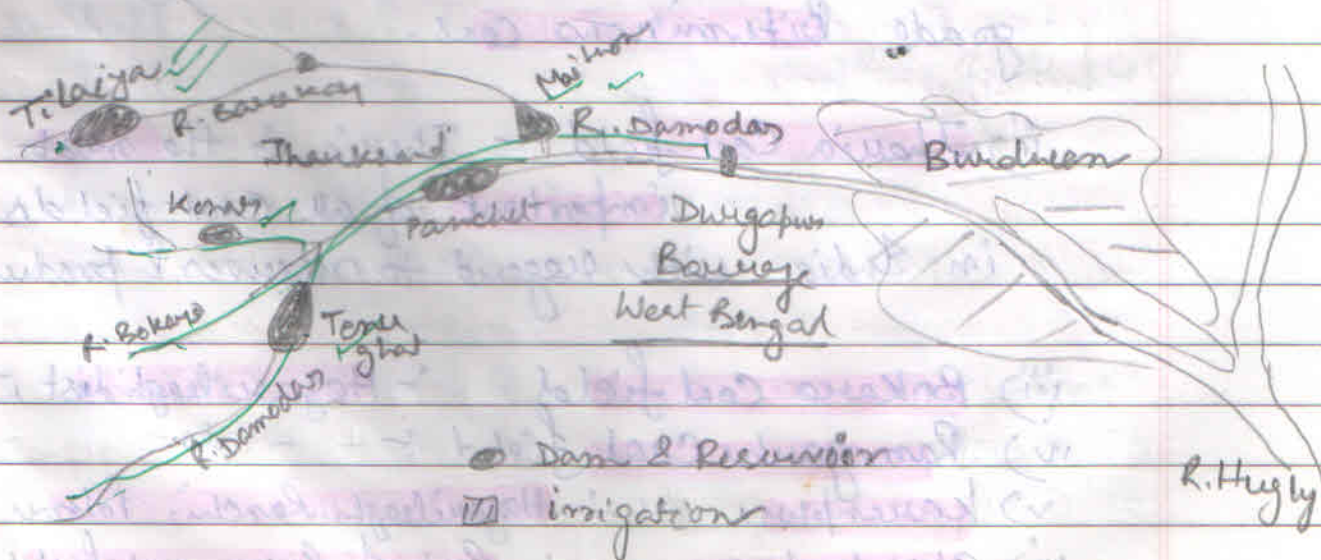 Tilaiya
R. Barakar
Maithon
R. Damodar
Jharkhand
Burdwan
Konar
Panchet
Durgapur
Barrage
West Bengal
R. Bokaro
Tenu
ghat
R. Damodar
Dam & Reservoir
irrigation
R. Hugly